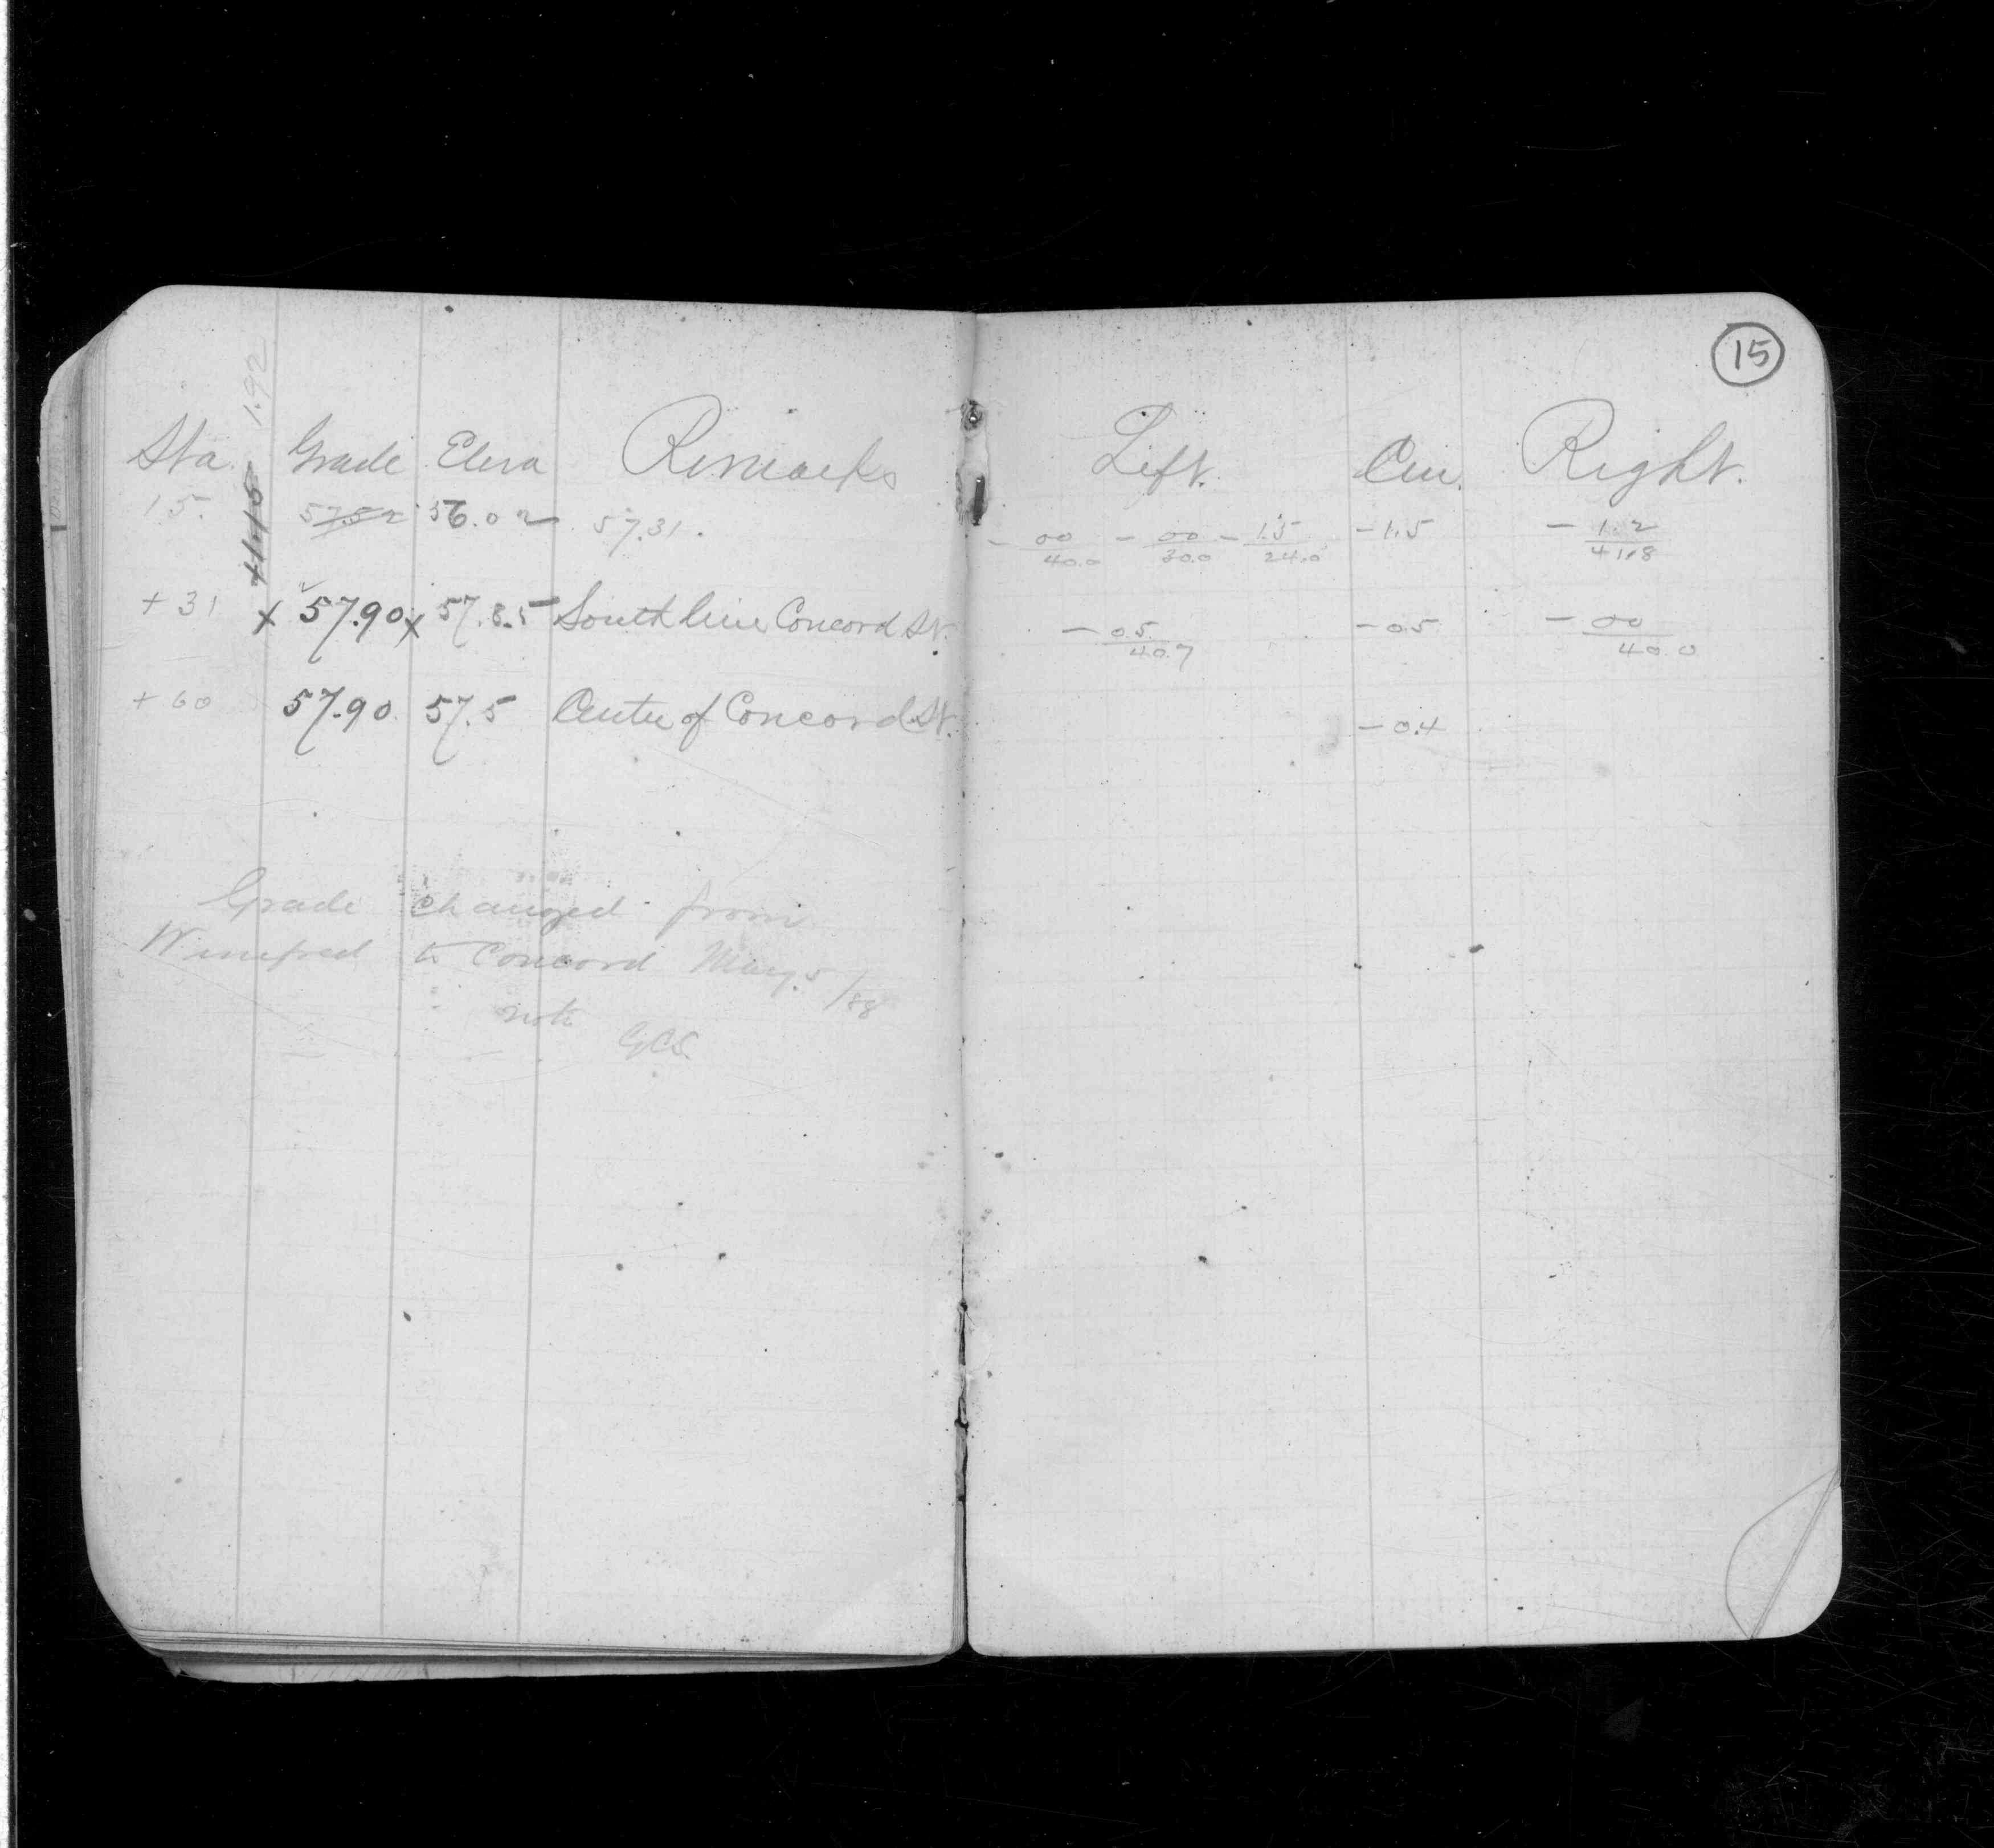 15
1.92
Sta. Grade Eleva Remarks Left. Cen. Right.
+1.15
15. 57.52 56.02 57.31. - 00/40.0 - 00/30.0 - 1.5/24.0 -1.5 - 1.2/41.8
+31 x 57.90 x 57.8.5 South line Concord St. - 0.5/40.7 -0.5 - 00/40.0
+60 57.90 57.5 Center of Concord St. -0.4
Grade changed from
Winifred to Concord May 5/88
note
GCS